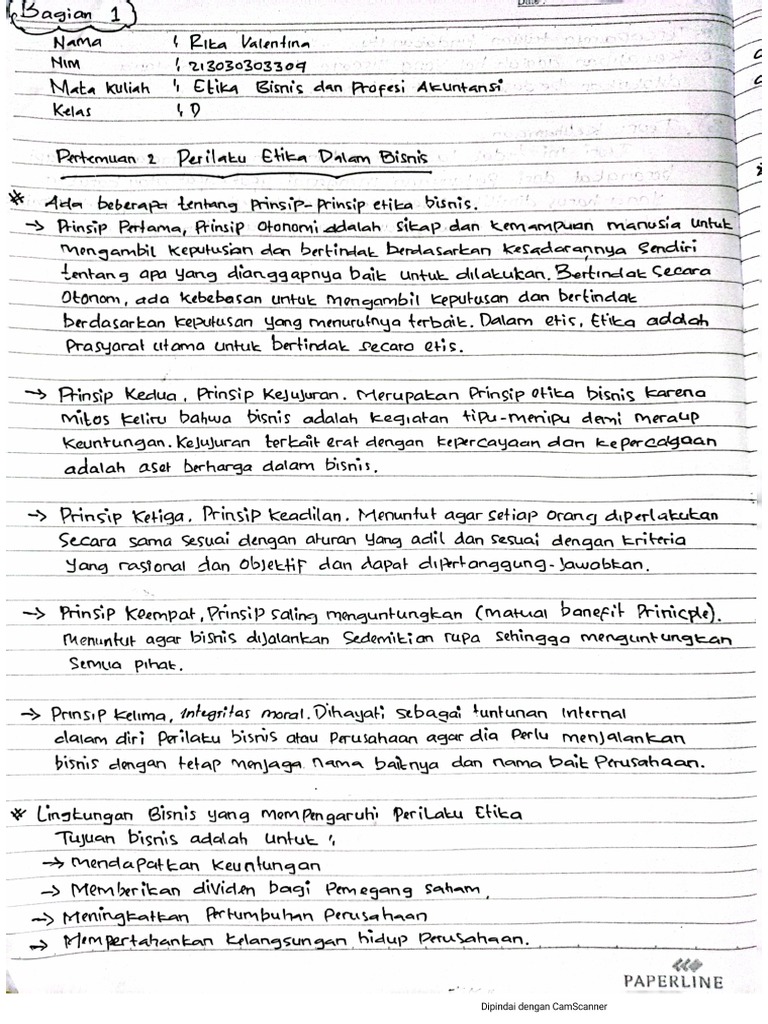 Bagian 1
Date :
Nama : Rika Valentina
NIM : 213030303309
Mata Kuliah : Etika Bisnis dan Profesi Akuntansi
Kelas : D
Pertemuan 2 Perilaku Etika Dalam Bisnis
* Ada beberapa tentang Prinsip-Prinsip etika bisnis.
→ Prinsip Pertama, Prinsip Otonomi adalah sikap dan kemampuan manusia untuk
mengambil keputusian dan bertindak berdasarkan kesadarannya sendiri
tentang apa yang dianggapnya baik untuk dilakukan. Bertindak secara
Otonom, ada kebebasan untuk mengambil keputusan dan bertindak
berdasarkan keputusan yang menurutnya terbaik. Dalam etis, Etika adalah
Prasyarat utama untuk bertindak secara etis.
→ Prinsip Kedua, Prinsip Kejujuran. Merupakan Prinsip etika bisnis karena
mitos keliru bahwa bisnis adalah kegiatan tipu-menipu demi meraup
Keuntungan. Kejujuran terkait erat dengan kepercayaan dan kepercayaan
adalah aset berharga dalam bisnis.
→ Prinsip Ketiga. Prinsip Keadilan. Menuntut agar setiap orang diperlakukan
Secara sama sesuai dengan aturan yang adil dan sesuai dengan kriteria
yang rasional dan objektif dan dapat dipertanggung-jawabkan.
→ Prinsip Keempat, Prinsip saling menguntungkan (matual banefit Prinicple).
Menuntut agar bisnis dijalankan Sedemikian rupa sehingga menguntungkan
Semua pihak.
→ Prinsip kelima, Integritas moral. Dihayati sebagai tuntunan internal
dalam diri Perilaku bisnis atau Perusahaan agar dia Perlu menjalankan
bisnis dengan tetap menjaga nama baiknya dan nama baik Perusahaan.
* Lingkungan Bisnis yang mempengaruhi Perilaku Etika
Tujuan bisnis adalah untuk :
→ Mendapatkan Keuntungan
→ Memberikan dividen bagi Pemegang saham,
→ Meningkatkan Pertumbuhan Perusahaan
→ Mempertahankan Kelangsungan hidup Perusahaan.
PAPERLINE
Dipindai dengan CamScanner